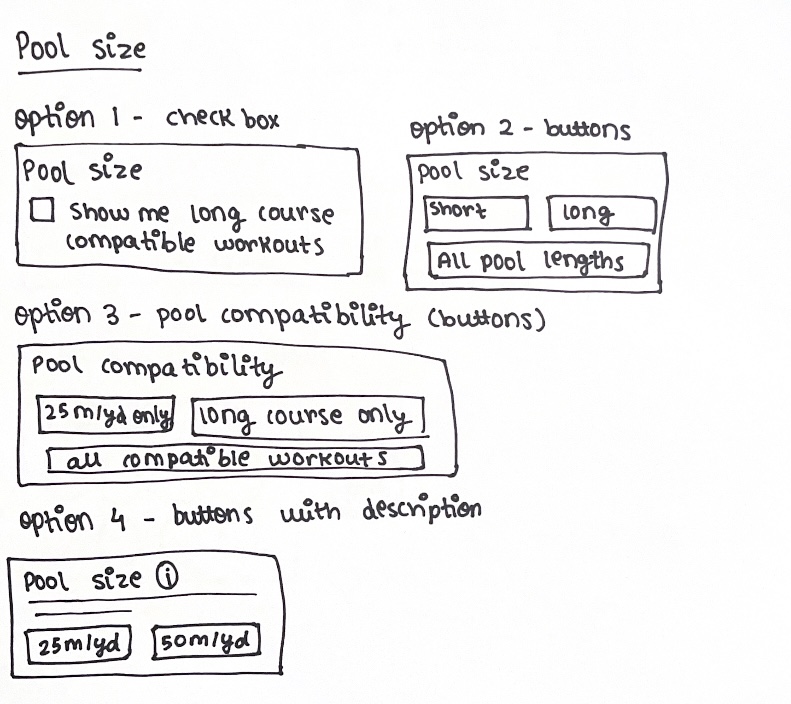 Pool size
option 1 - check box
Pool size
Show me long course
compatible workouts
option 2 - buttons
pool size
Short
long
All pool lengths
option 3 - pool compatibility (buttons)
Pool compatibility
25m/yd only
long course only
all compatible workouts
option 4 - buttons with description
Pool size i
25m/yd
50m/yd